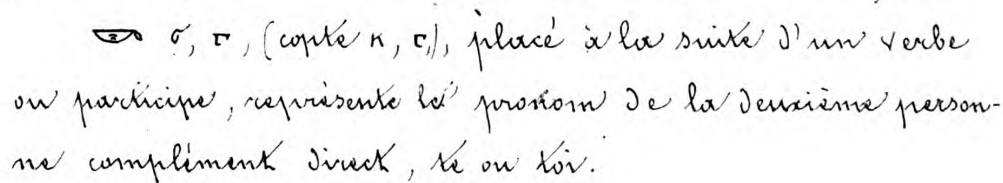 𓎡 σ, г, (copte ⲕ, ⲅ,), placé à la suite d'un verbe
ou participe, représente le pronom de la deuxième person-
ne complément direct, te ou toi.